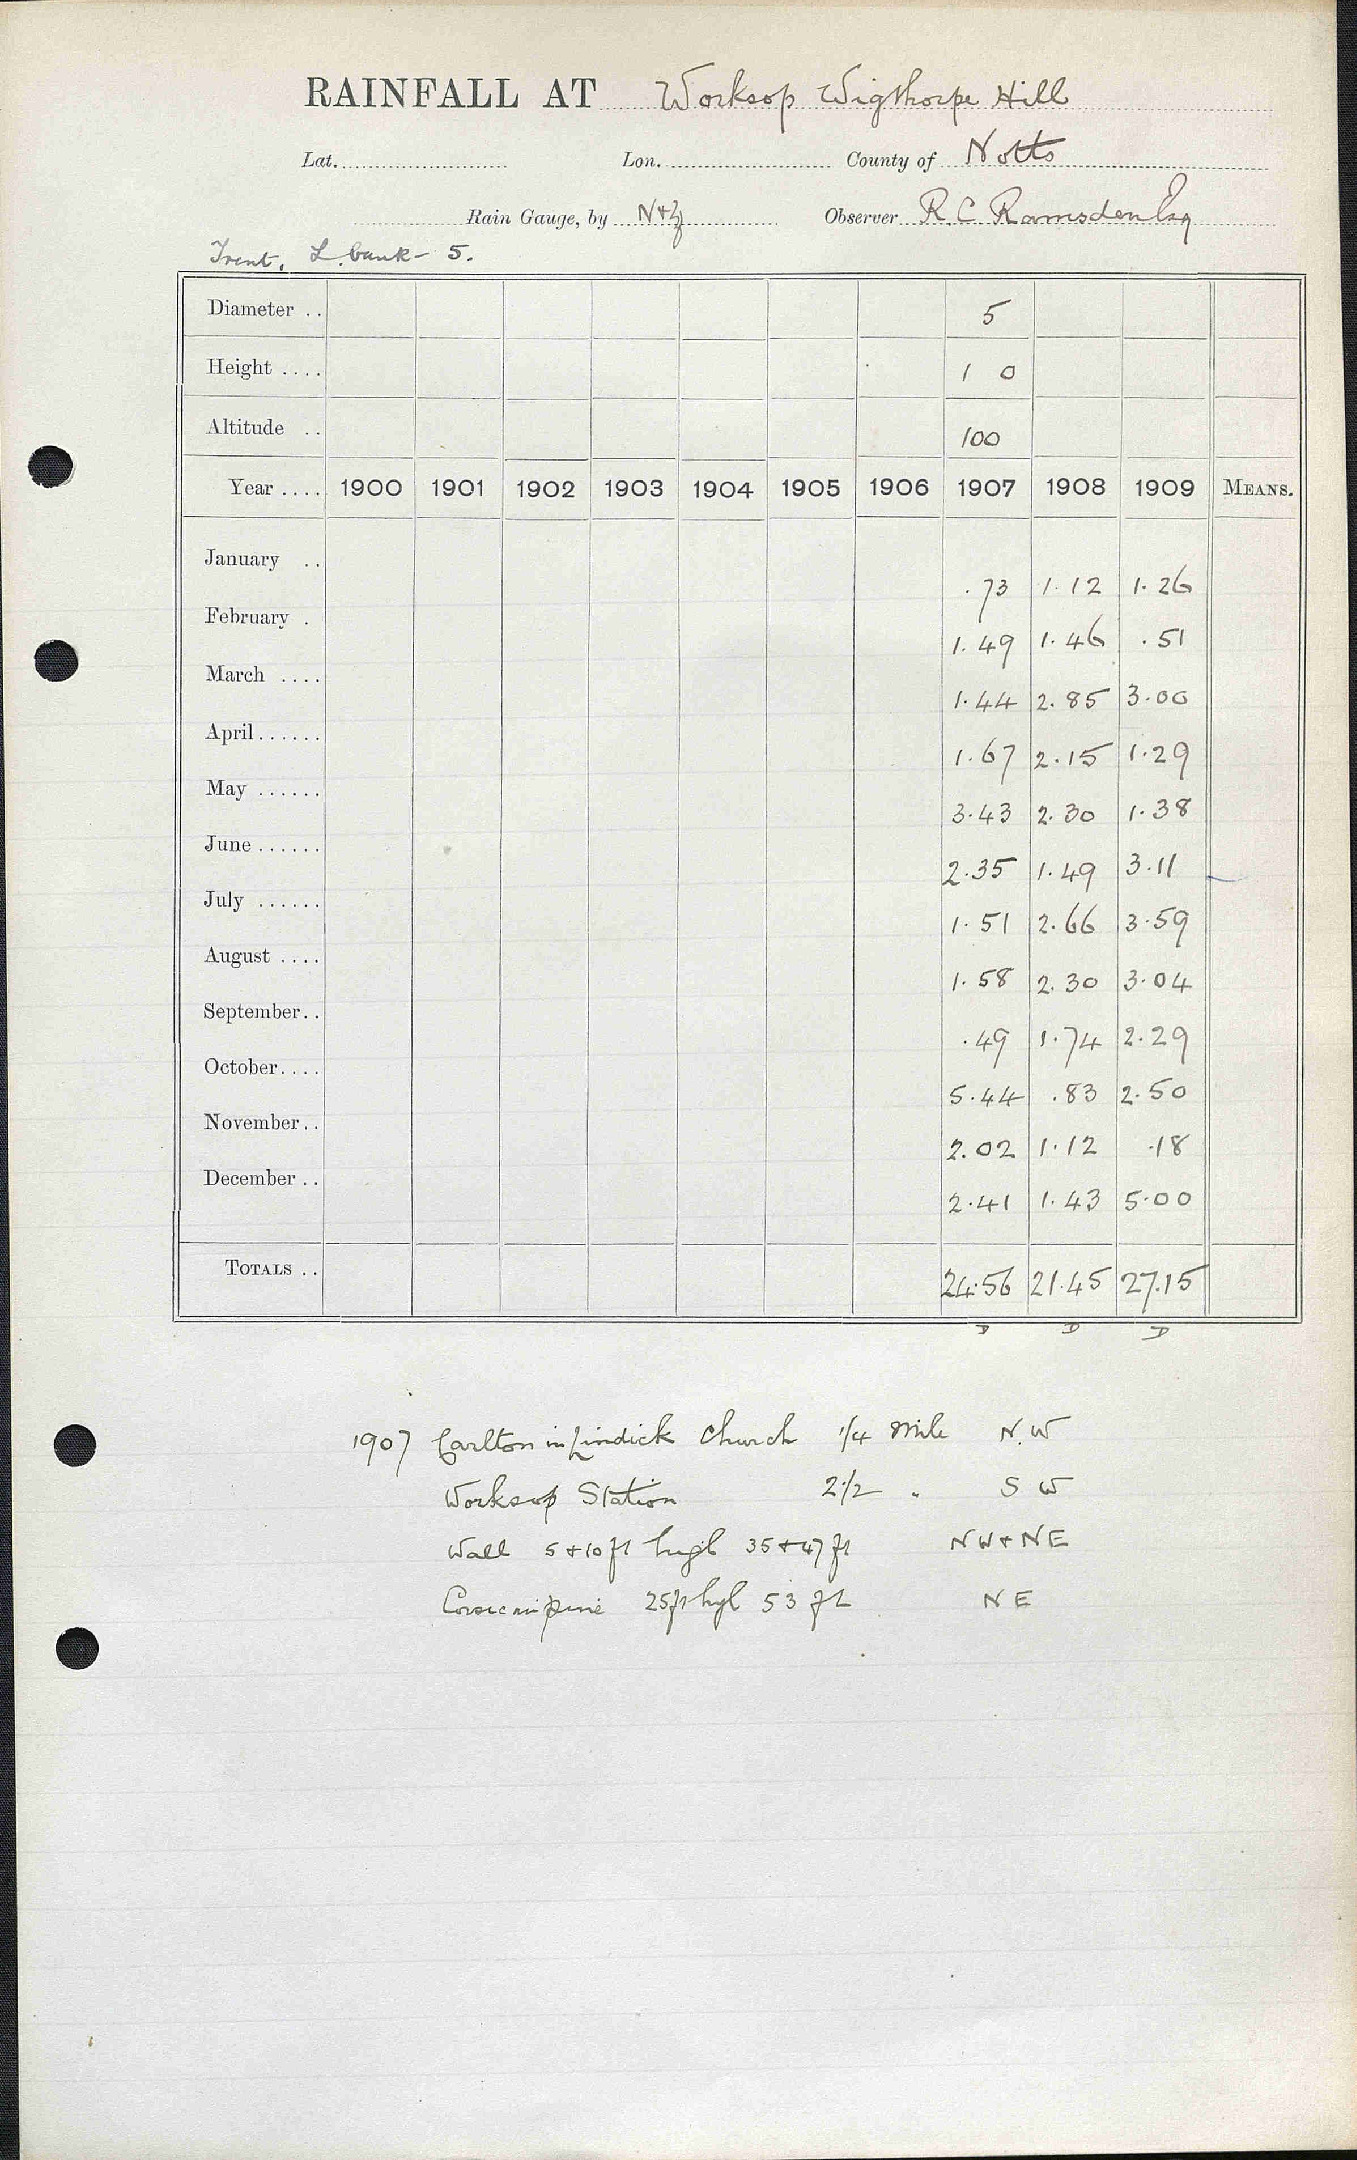 RAINFALL AT Worksop Wigthorpe Hill
Lat. Lon. County of Notts
Rain Gauge, by N+Z Observer R. C Ramsden Esq
Trent, L. bank - 5.
Diameter .. 5
Height .... 1 0
Altitude .. 100
Year .... 1900 1901 1902 1903 1904 1905 1906 1907 1908 1909 MEANS.
January .. .73 1.12 1.26
February . 1.49 1.46 .51
March .... 1.44 2.85 3.00
April...... 1.67 2.15 1.29
May ...... 3.43 2.30 1.38
June ...... 2.35 1.49 3.11
July ...... 1.51 2.66 3.59
August .... 1.58 2.30 3.04
September.. .49 1.74 2.29
October.... 5.44 .83 2.50
November.. 2.02 1.12 .18
December .. 2.41 1.43 5.00
TOTALS .. 24.56 21.45 27.15
D D D
1907 Carlton in Lindick Church 1/4 Mile N.W
Worksop Station 2 1/2 " S W
Wall 5+10 ft high 35+47 ft NW+NE
Corsican pine 25ft high 53 ft NE